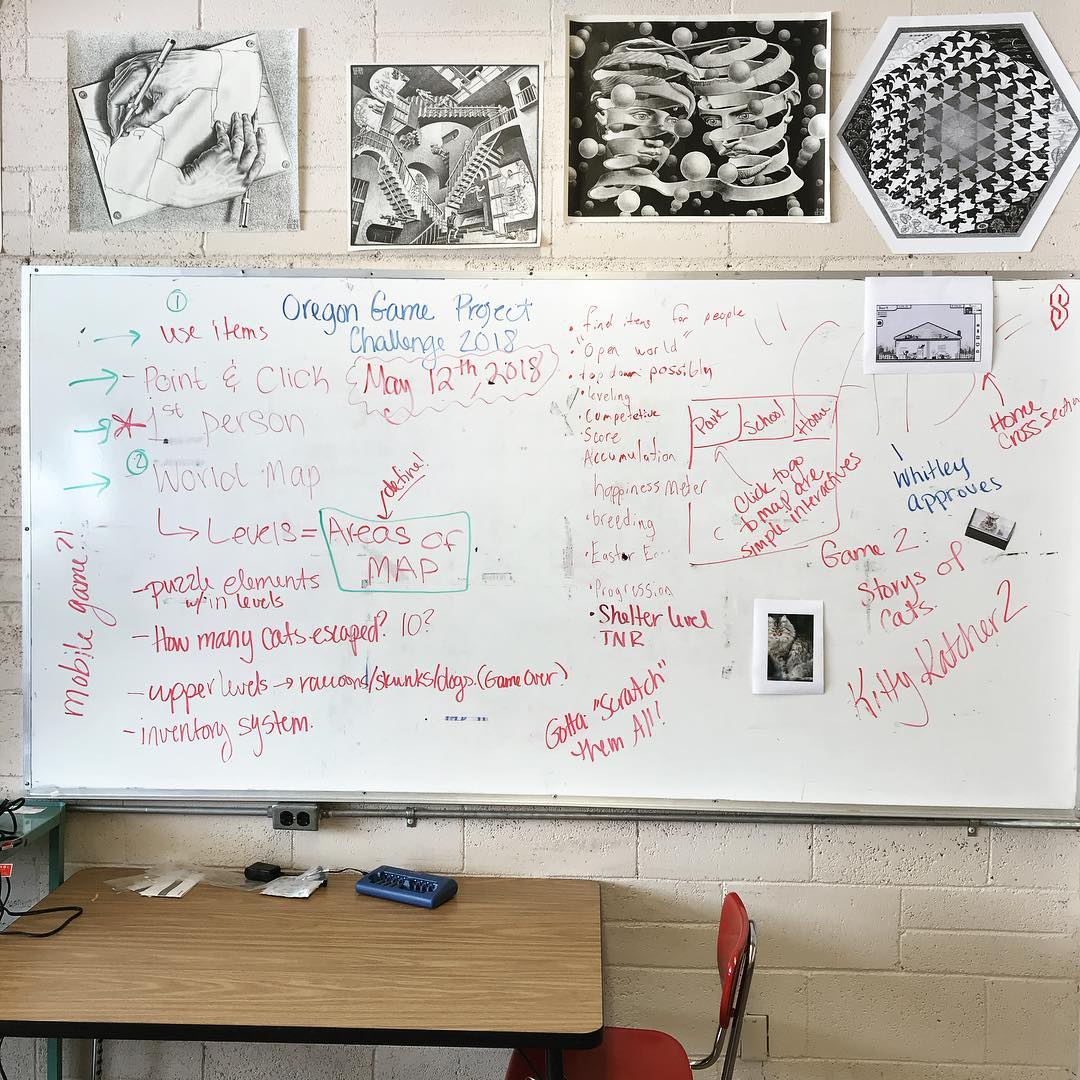 ①
use items
- Point & Click
* 1st person
②
World Map
↳ Levels = Areas of
MAP
define!
- puzzle elements
w/in levels
- How many cats escaped? 10?
- upper levels → raccoons/skunks/dogs. (Game Over)
- inventory system.
mobile game?!
Oregon Game Project
Challenge 2018
May 12th, 2018
• find items for people
• "Open world"
• top down possibly
• leveling
• Competetive
• Score
Accumulation
happiness meter
• breeding
• Easter E
• Progression
• Shelter level
TNR
Gotta "Scratch"
them All!
Park
School
Home
Click to go
to map are
simple interactives
Home
Cross Section
Whitley
approves
Game 2:
Storys of
cats.
Kitty Katcher 2